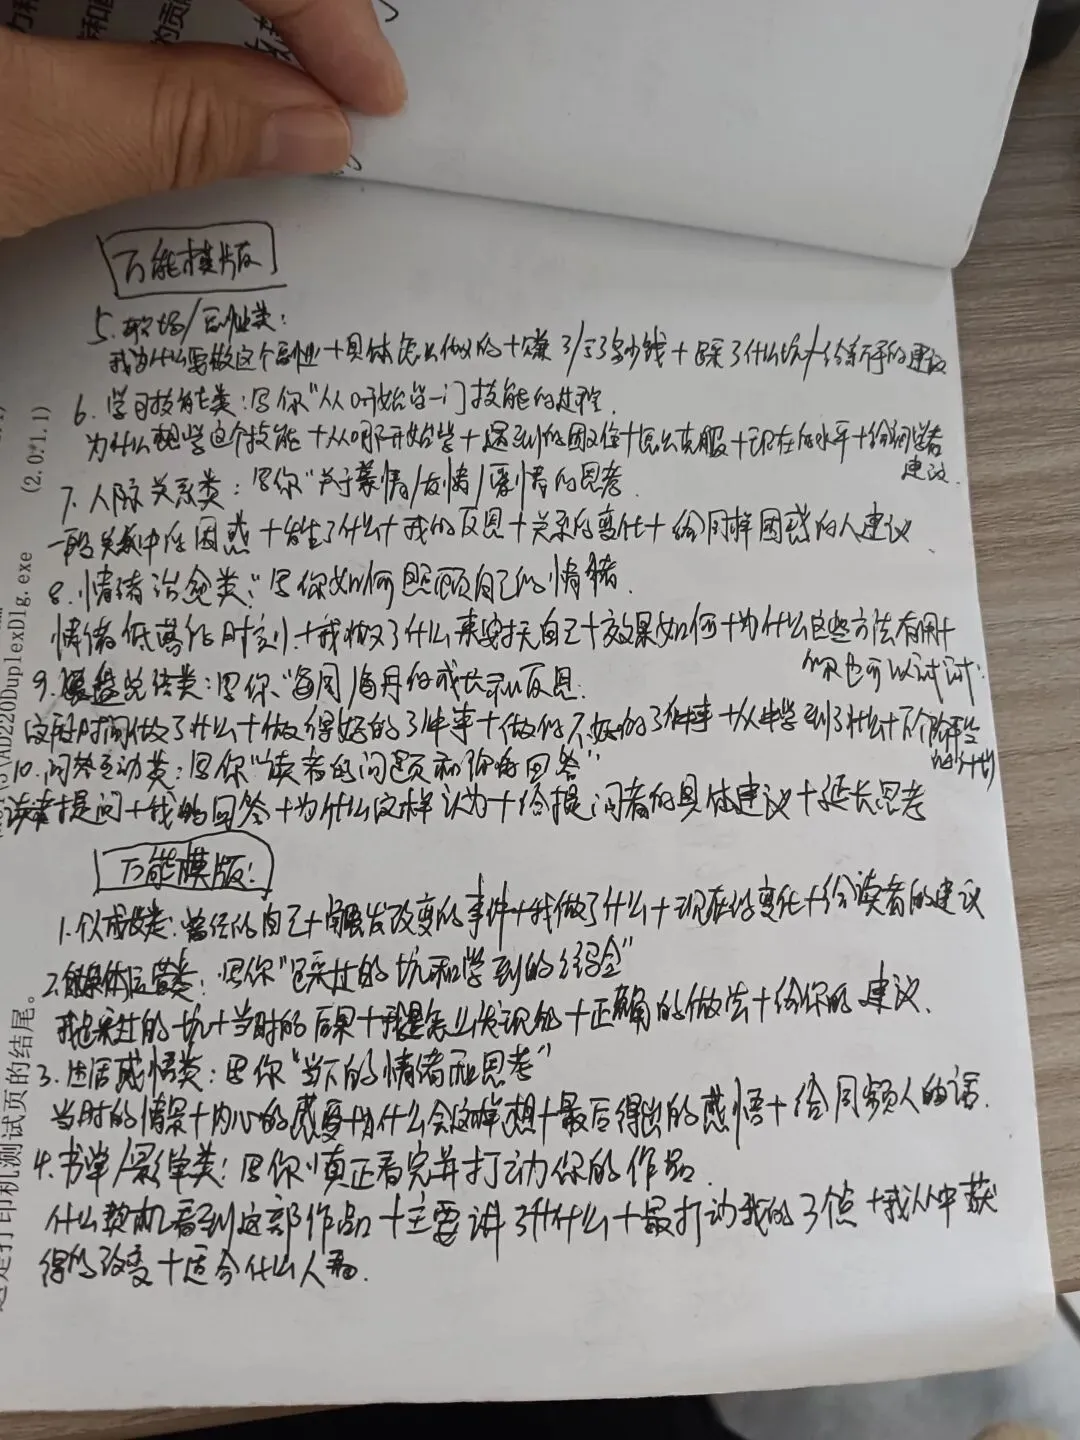 万能模版
5. 职场/副业类：
我为什么要做这个副业+具体怎么做的+赚了/亏了多少钱+踩了什么坑+给新手的建议
6. 学习技能类：写你“从0开始学一门技能的过程.
为什么想学这个技能+从哪开始学+遇到的困难+怎么克服+现在的水平+给初学者
建议.
7. 人际关系类：写你“关于亲情/友情/爱情的思考.
一段关系中的困惑+发生了什么+我的反思+关系的变化+给同样困惑的人建议
8. 情绪治愈类：写你如何照顾自己的情绪.
情绪低落的时刻+我做了什么来安抚自己+效果如何+为什么这些方法有用+
你也可以试试.
9. 复盘总结类：写你“每周/每月的成长和反思.
这段时间做了什么+做得好的3件事+做得不好的3件事+从中学到了什么+下个阶段
的计划
10. 问答互动类：写你“读者的问题和你的回答”
读者提问+我的回答+为什么这样认为+给提问者的具体建议+延长思考
万能模版：
1. 个人成长类：曾经的自己+触发改变的事件+我做了什么+现在的变化+给读者的建议
2. 自媒体运营类：写你“踩过的坑和学到的经验”
我踩过的坑+当时的后果+我是怎么发现的+正确的做法+给你的建议.
3. 生活感悟类：写你“当下的情绪和思考”
当时的情景+内心的感受+为什么会这样想+最后得出的感悟+给同频人的话.
4. 书单/影单类：写你“真正看完并打动你的作品.
什么契机看到这部作品+主要讲了什么+最打动我的3个点+我从中获
得的改变+适合什么人看.
(2.0.1.1)
\AD220DuplexDlg.exe
这是打印机测试页的结尾。